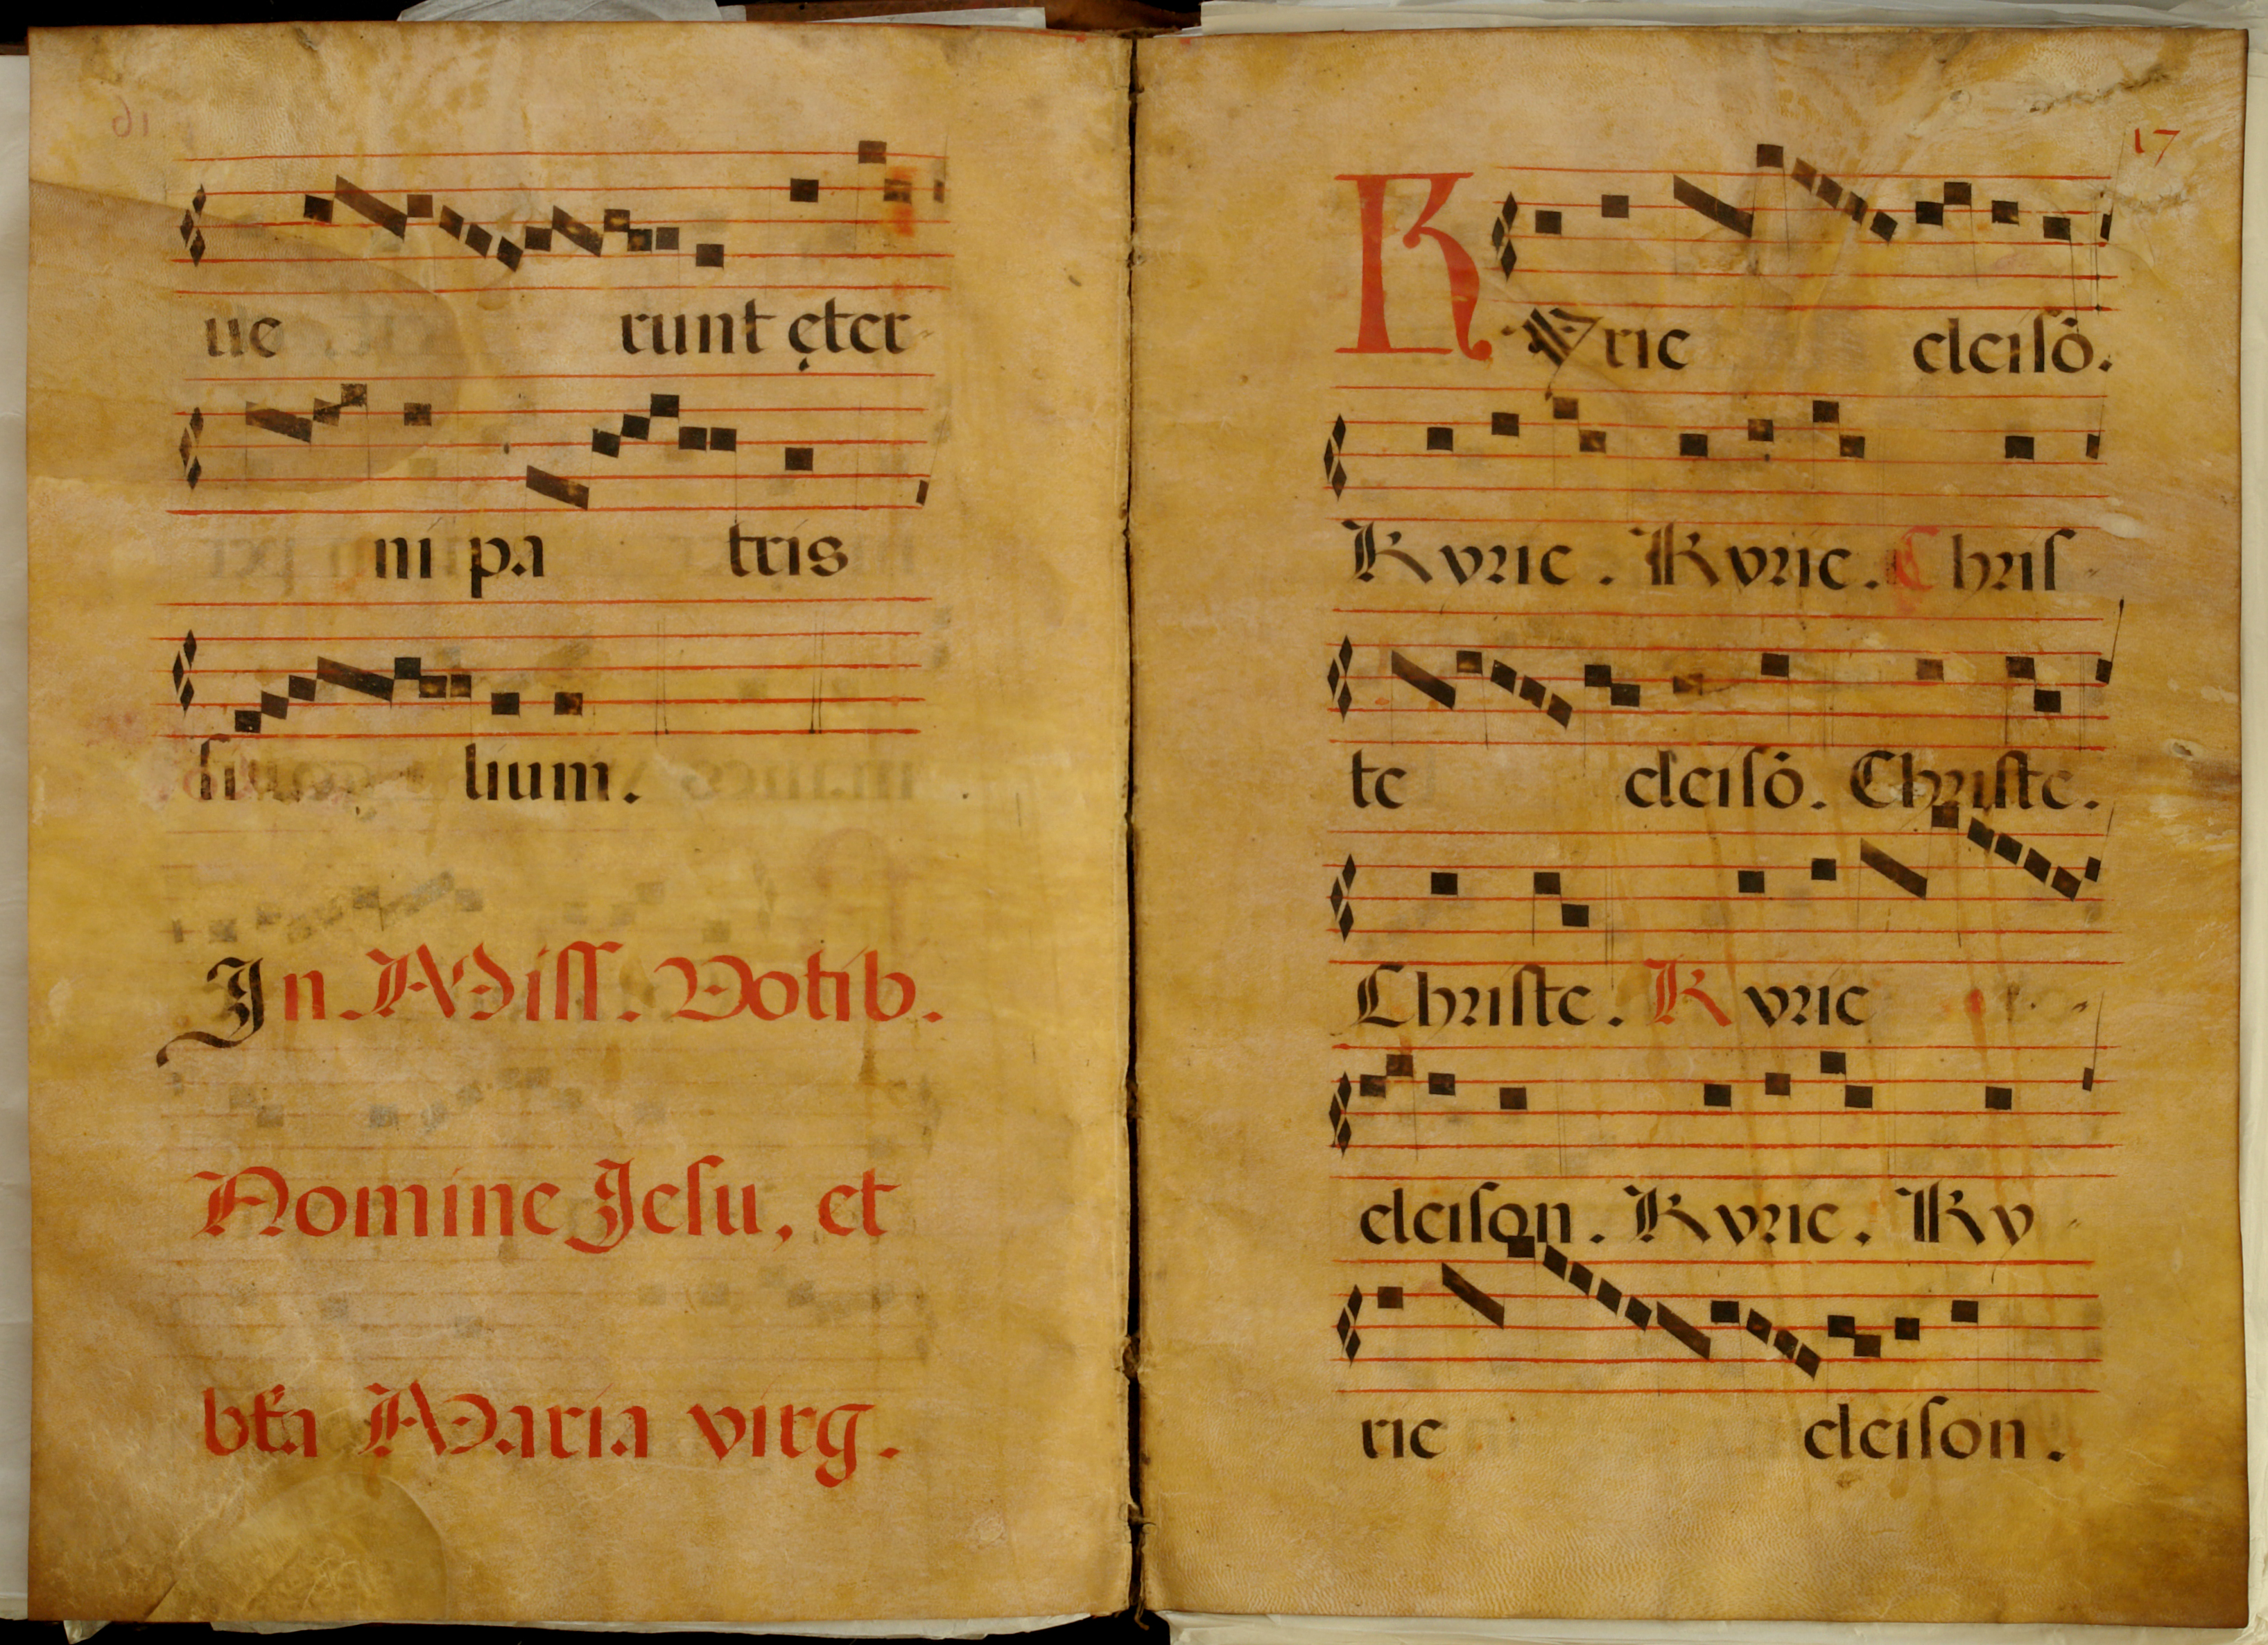 ue runt ęter-
ni pa tris
fi lium.
In Miss. Votib.
Nomine Jesu, et
bta Maria virg.
17
Kyrie eleisō.
Kyrie. Kyrie. Chris-
te eleisō. Christe.
Christe. Kyrie
eleison. Kyrie. Ky-
rie eleison.